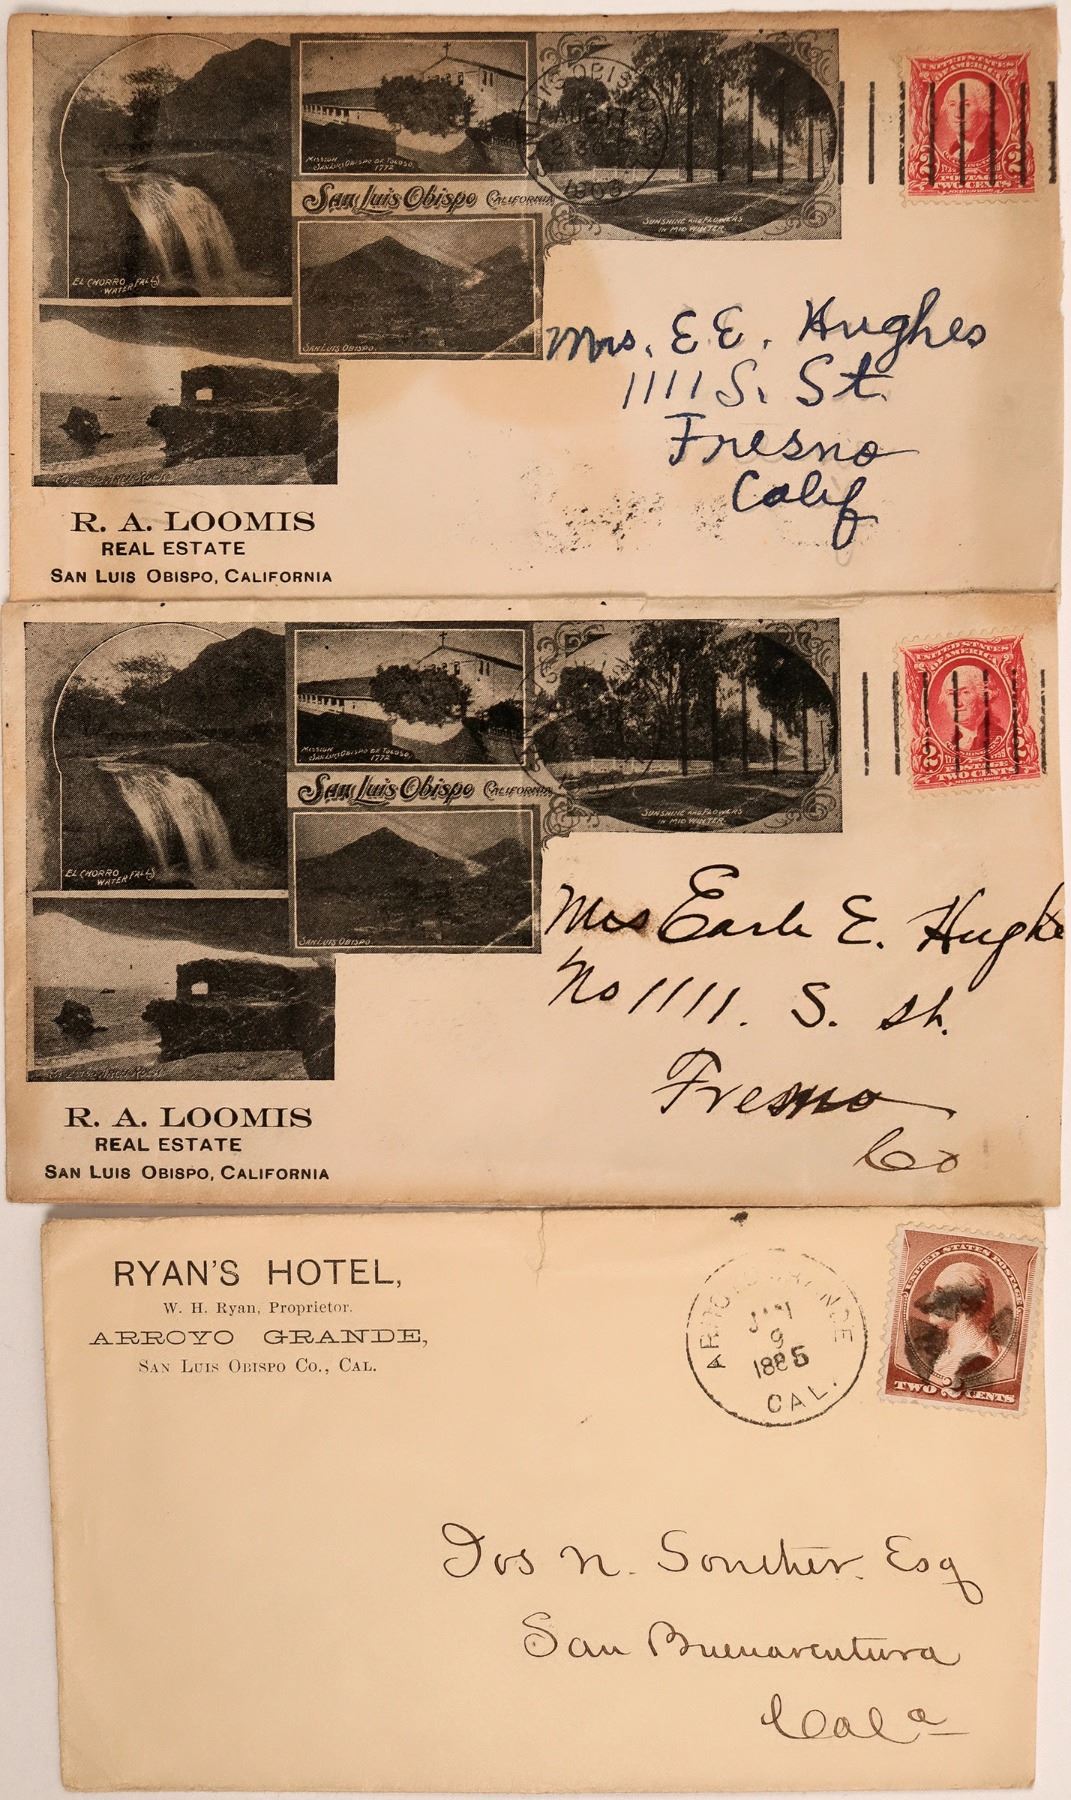 MISSION
SAN LUIS OBISPO DE TOLOSO,
1772
SAN LUIS OBISPO CALIFORNIA
SUNSHINE AND FLOWERS
IN MID WINTER
EL CHORRO
WATER FALLS
SAN LUIS OBISPO.
LUIS OBISPO
AUG 17
1903
UNITED STATES
OF AMERICA
2 2
POSTAGE
TWO CENTS
Mrs. E. E. Hughes
1111 S. St.
Fresno
Calif
R. A. LOOMIS
REAL ESTATE
SAN LUIS OBISPO, CALIFORNIA
MISSION
SAN LUIS OBISPO DE TOLOSO,
1772
SAN LUIS OBISPO CALIFORNIA
SUNSHINE AND FLOWERS
IN MID WINTER
EL CHORRO
WATER FALLS
SAN LUIS OBISPO.
UNITED STATES
OF AMERICA
2 2
POSTAGE
TWO CENTS
Mrs Earle E. Hughe
No 1111. S. St.
Fresno
Co
R. A. LOOMIS
REAL ESTATE
SAN LUIS OBISPO, CALIFORNIA
RYAN'S HOTEL,
W. H. Ryan, Proprietor.
ARROYO GRANDE,
SAN LUIS OBISPO CO., CAL.
ARROYO GRANDE
JAN
9
1885
CAL.
UNITED STATES POSTAGE
TWO 2 CENTS
Jos N. Souther. Esq
San Buenaventura
Cala